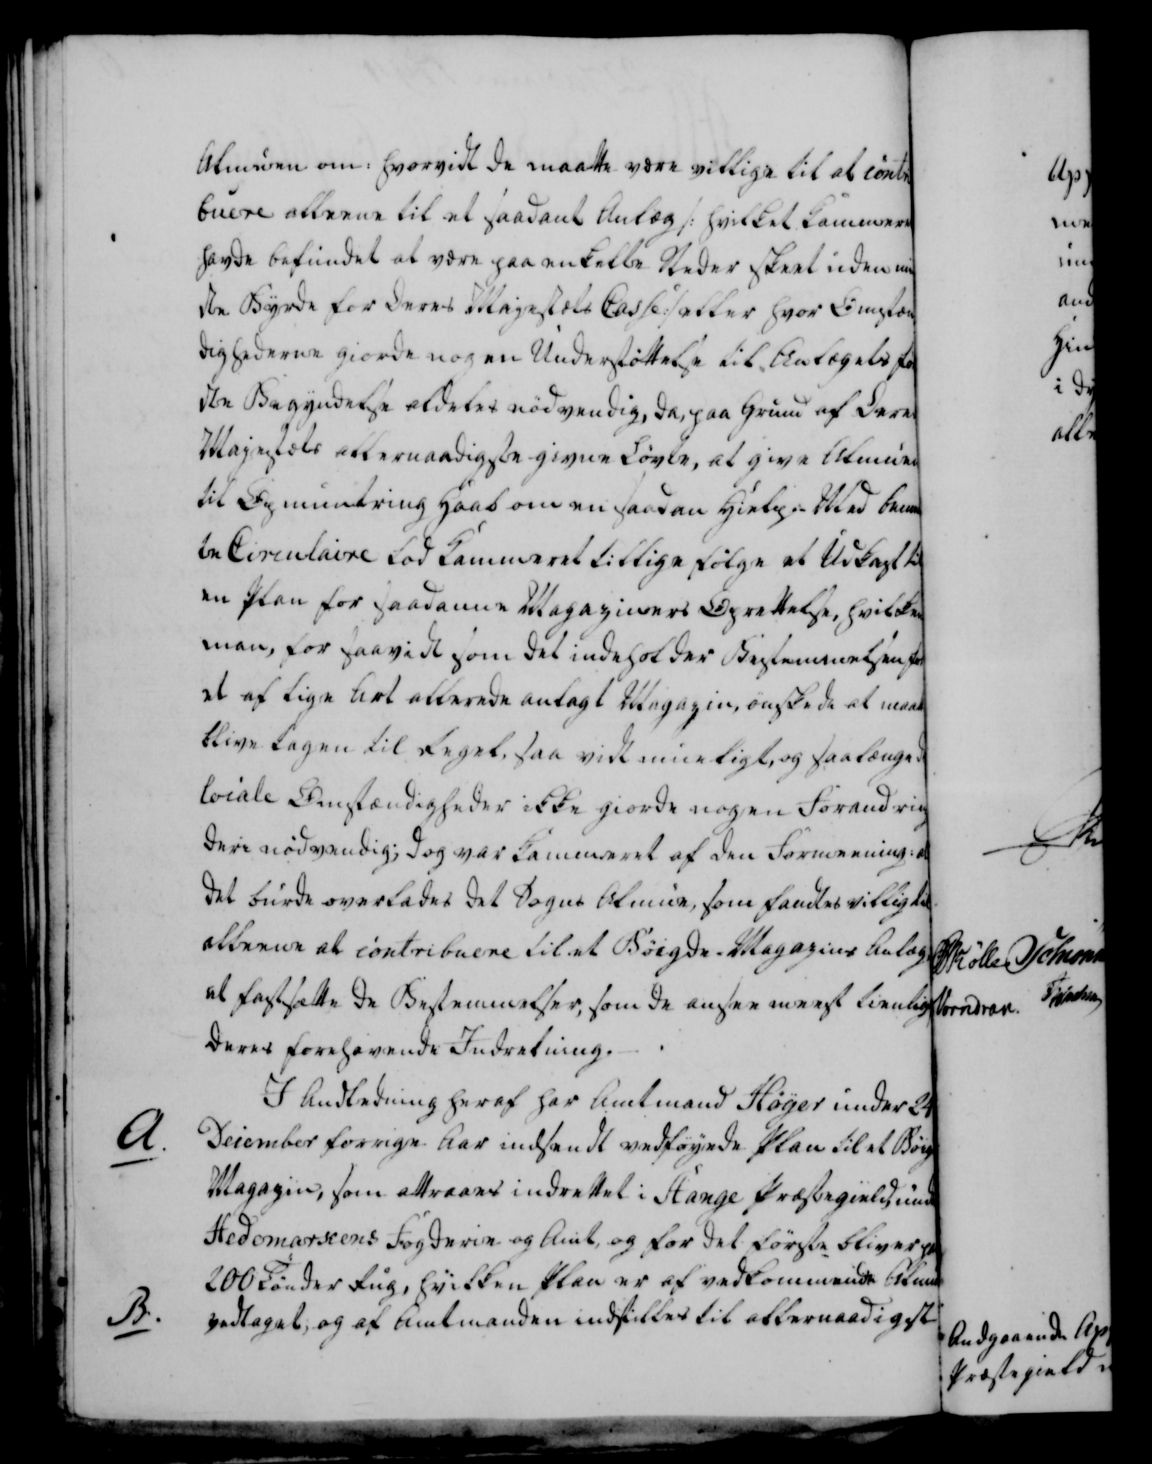 Almuen om: hvorvidt de maatte være villige til at contri
buere alleene til et saadant Anlæg /: hvilket Kammeret
havde befundet at være paa enkelte Steder skeet uden mind
ste Byrde for Deres Majestæts Casse :/ eller hvor Omstæn
dighederne giorde nogen Understøttelse til Anlægets før
ste Begyndelse aldeles nödvendig, da, paa Grund af Deres
Majestæts allernaadigste givne Løvte, at give Almuen
til Opmuntring Haab om en saadan Hielp. Med bemeld
te Circulaire lod Kammeret tillige følge et Udkast til
en Plan for saadanne Magaziners Oprettelse, hvilken
man, for saavidt som det indeholder Bestemmelsen for
et af lige Art allerede anlagt Magazin, ønskede at maatte
blive tagen til Regel, saa vidt mueligt, og saalænge de
locale Omstændigheder ikke giorde nogen Forandring
deri nödvendig; dog var Kammeret af den Formeening: at
det burde overlades det Sogns Almue, som fandtes villig til
alleene at contribuere til et Böigde-Magazins Anlæg
at fastsætte de Bestemmelser, som de ansee meest tienlig
deres forehavende Indretning.
I Andledning heraf har Amtmand Höyer under 24
A. December forrige Aar indsendt vedföyede Plan til et Böig
Magazin, som attraaes indrettet i Stange Præstegield, under
Hedemarkens Fogderie og Amt, og for det første bliver paa
200 Tønder Rug, hvilken Plan er af vedkommende Almue
B. vedtaget, og af Amtmanden indstilles til allernaadigst
Møller
Schiönn
Vorndran.
Andgaaende Ap
Præstegield